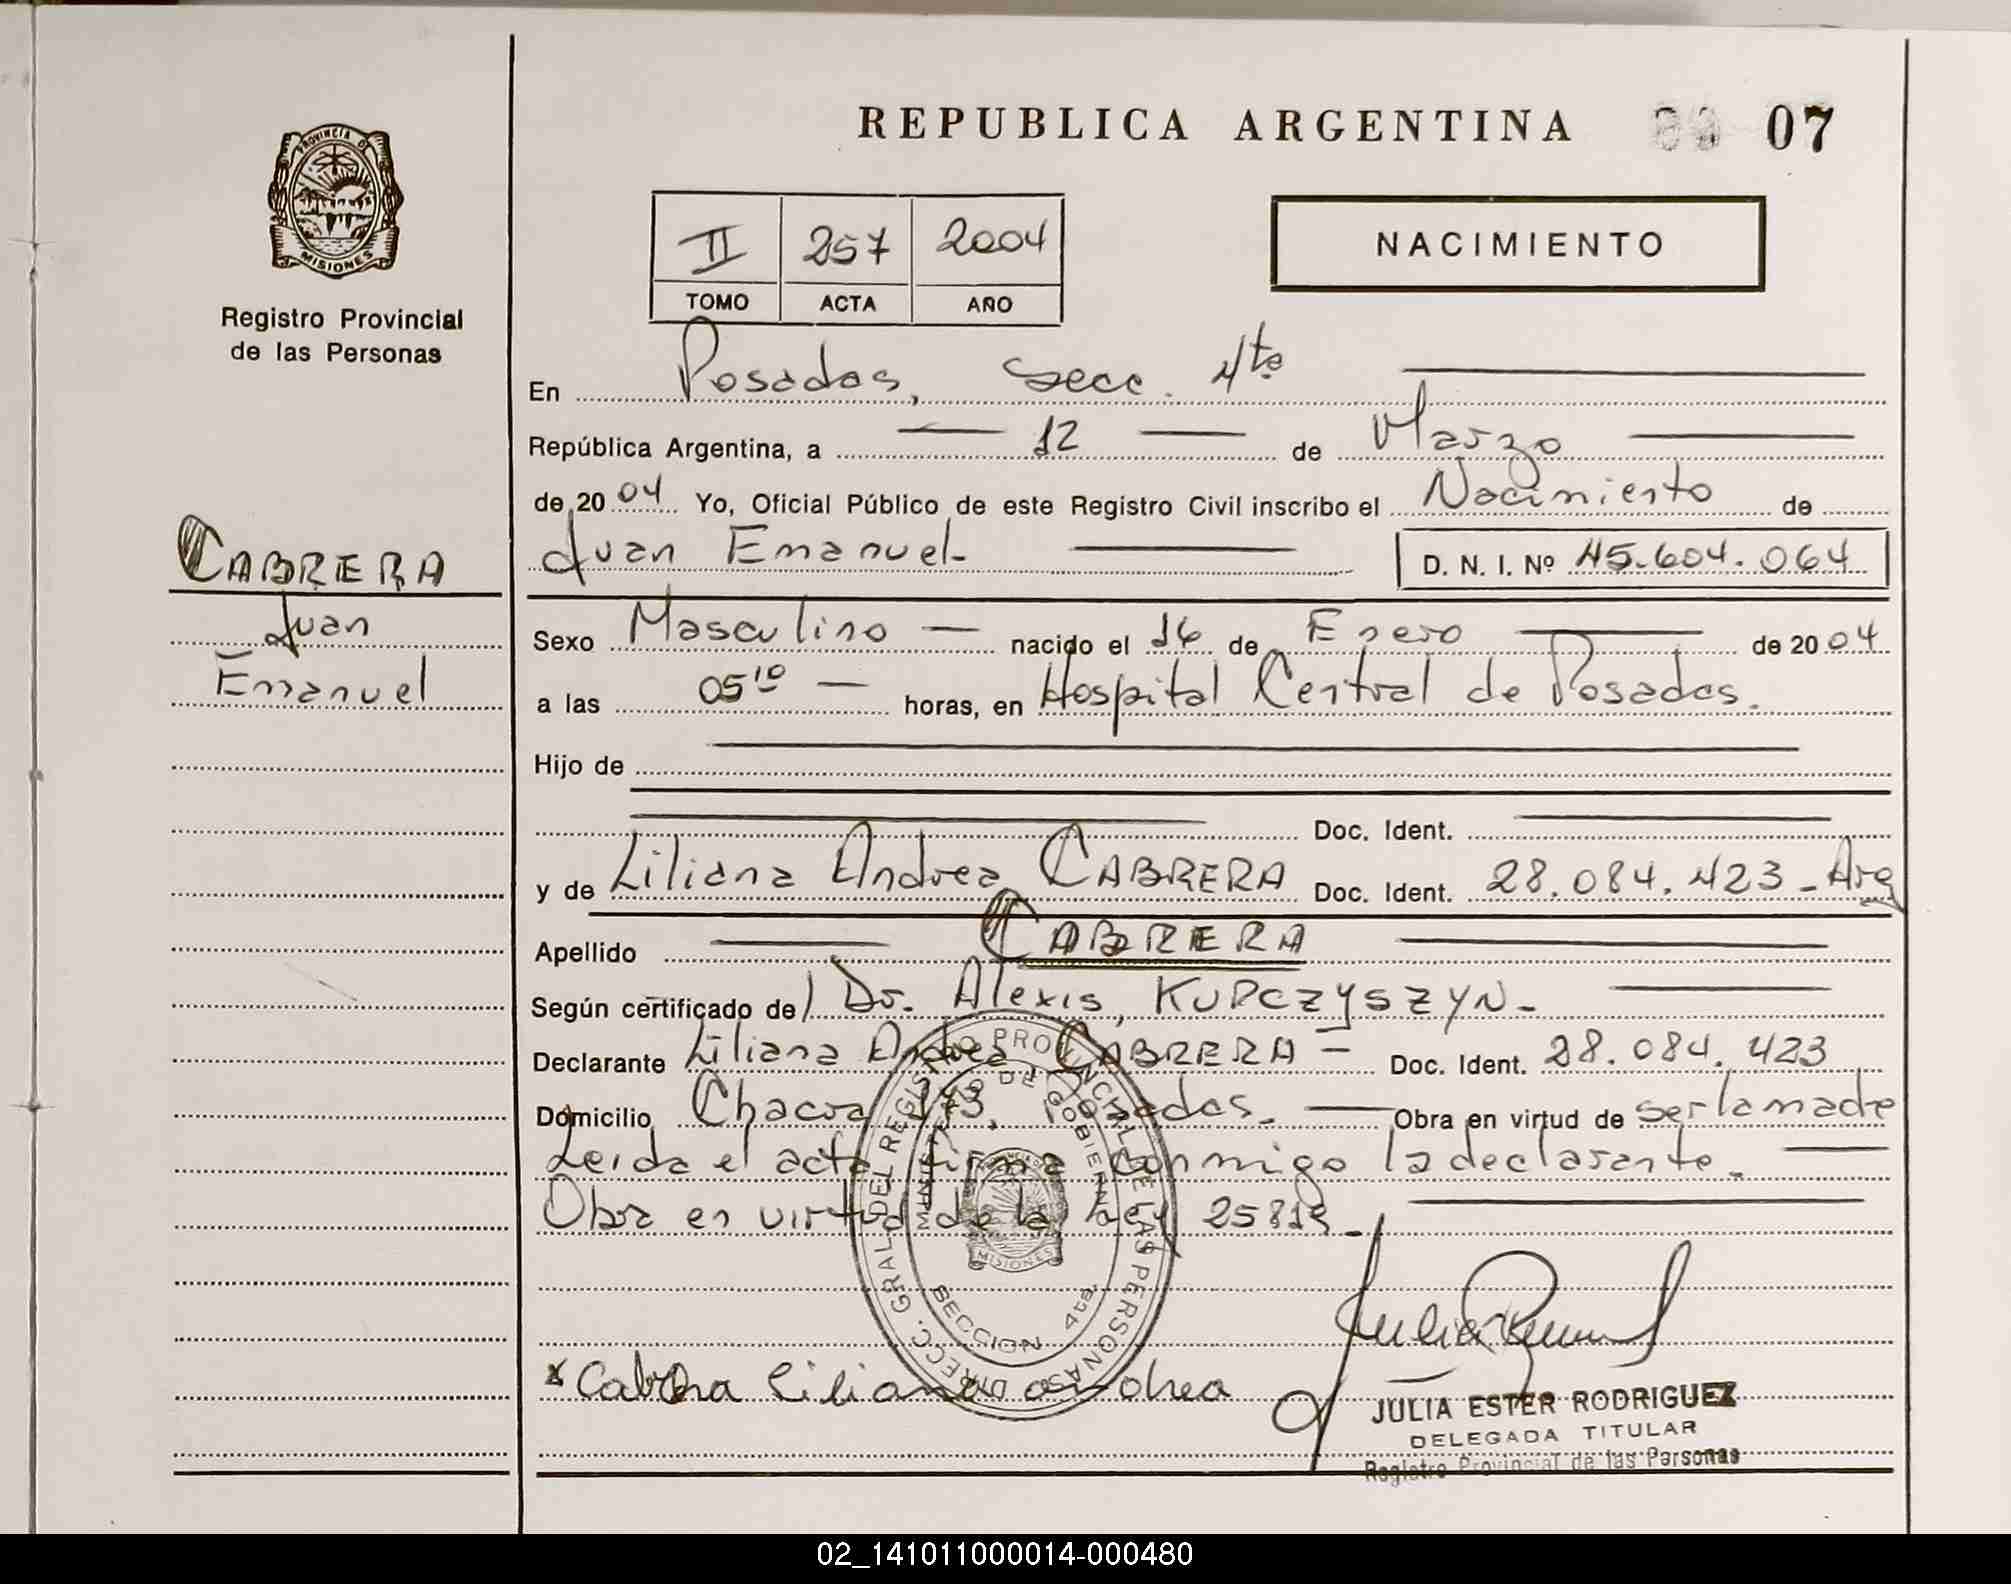 REPUBLICA ARGENTINA 07
PROVINCIA DE
MISIONES
Registro Provincial
de las Personas
II 257 2004
TOMO ACTA AÑO
NACIMIENTO
En Posadas, Secc. 4ta
República Argentina, a 12 de Marzo
de 2004 Yo, Oficial Público de este Registro Civil inscribo el Nacimiento de
Juan Emanuel D. N. I. Nº 45.604.064
CABRERA
Juan
Emanuel
Sexo Masculino nacido el 16 de Enero de 2004
a las 05 10 horas, en Hospital Central de Posadas.
Hijo de
Doc. Ident.
y de Liliana Andrea CABRERA Doc. Ident. 28.084.423 - Arg
Apellido CABRERA
Según certificado de Dr. Alexis, KUPCZYSZYN -
Declarante Liliana Andrea CABRERA - Doc. Ident. 28.084.423
Domicilio Chacra Posadas. Obra en virtud de ser la madre
Leida el acta firma conmigo la declarante.
Obra en virtud de la Ley 25819 -
DIRECC. GRAL. DEL REGISTRO PROVINCIAL DE LAS PERSONAS
MINISTERIO DE GOBIERNO
MISIONES
SECCION 4ta.
x Cabrera Liliana andrea
JULIA ESTER RODRIGUEZ
DELEGADA TITULAR
Registro Provincial de las Personas
02_141011000014-000480